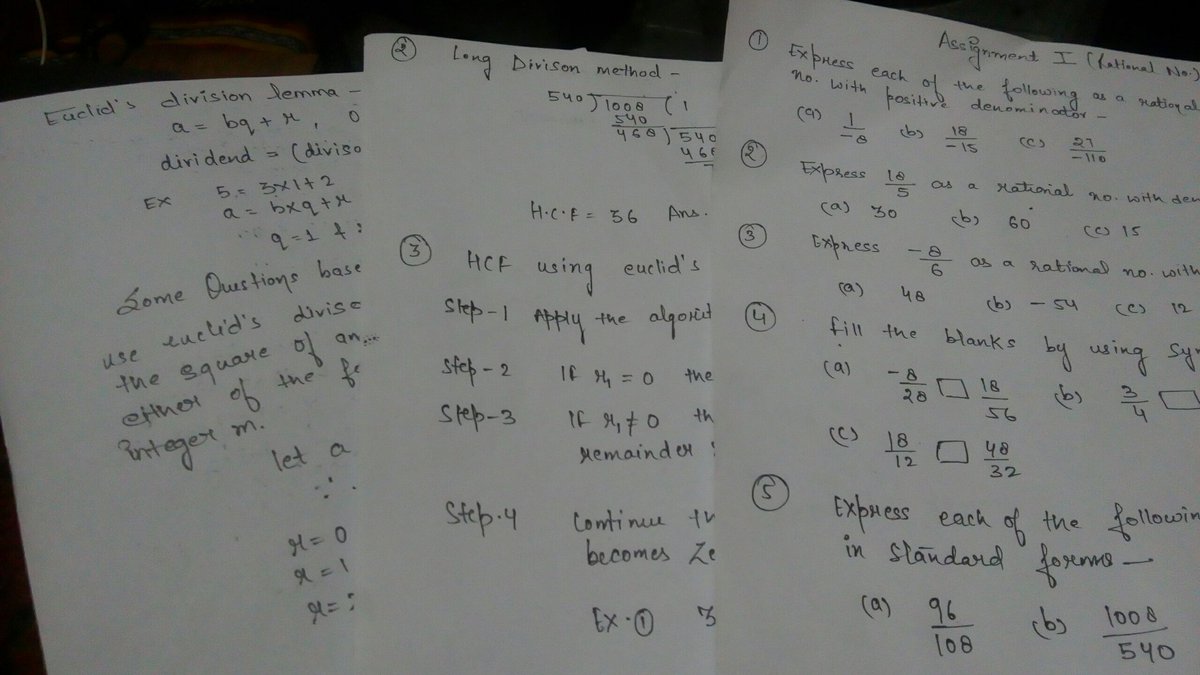 Euclid's division lemma -
a = bq + r, 0
dividend = (diviso
Ex 5 = 3x1+2
a = bxq+r
q=1 &
Some Questions base
use euclid's diviso
the square of an
either of the fo
integer m.
let a
∴
r=0
r=1
r=
② Long Divison method -
540)1008(1
540
468)540
468
H.C.F = 36 Ans.
③ HCF using euclid's
Step-1 Apply the algorit
Step-2 If r₁ = 0 the
Step-3 If r₁ ≠ 0 th
remainder
Step-4 Continue th
becomes Ze
Ex-① 3
Assignment I (Rational No.)
① Express each of the following as a rational
no. with positive denominator -
(a) 1/-8 (b) 18/-15 (c) 27/-110
② Express 18/5 as a rational no. with den
(a) 30 (b) 60 (c) 15
③ Express -8/6 as a rational no. with
(a) 48 (b) -54 (c) 12
④ fill the blanks by using sy
(a) -8/28 □ 18/56 (b) 3/4 □
(c) 18/12 □ 48/32
⑤ Express each of the followin
in standard forms -
(a) 96/108 (b) 1008/540